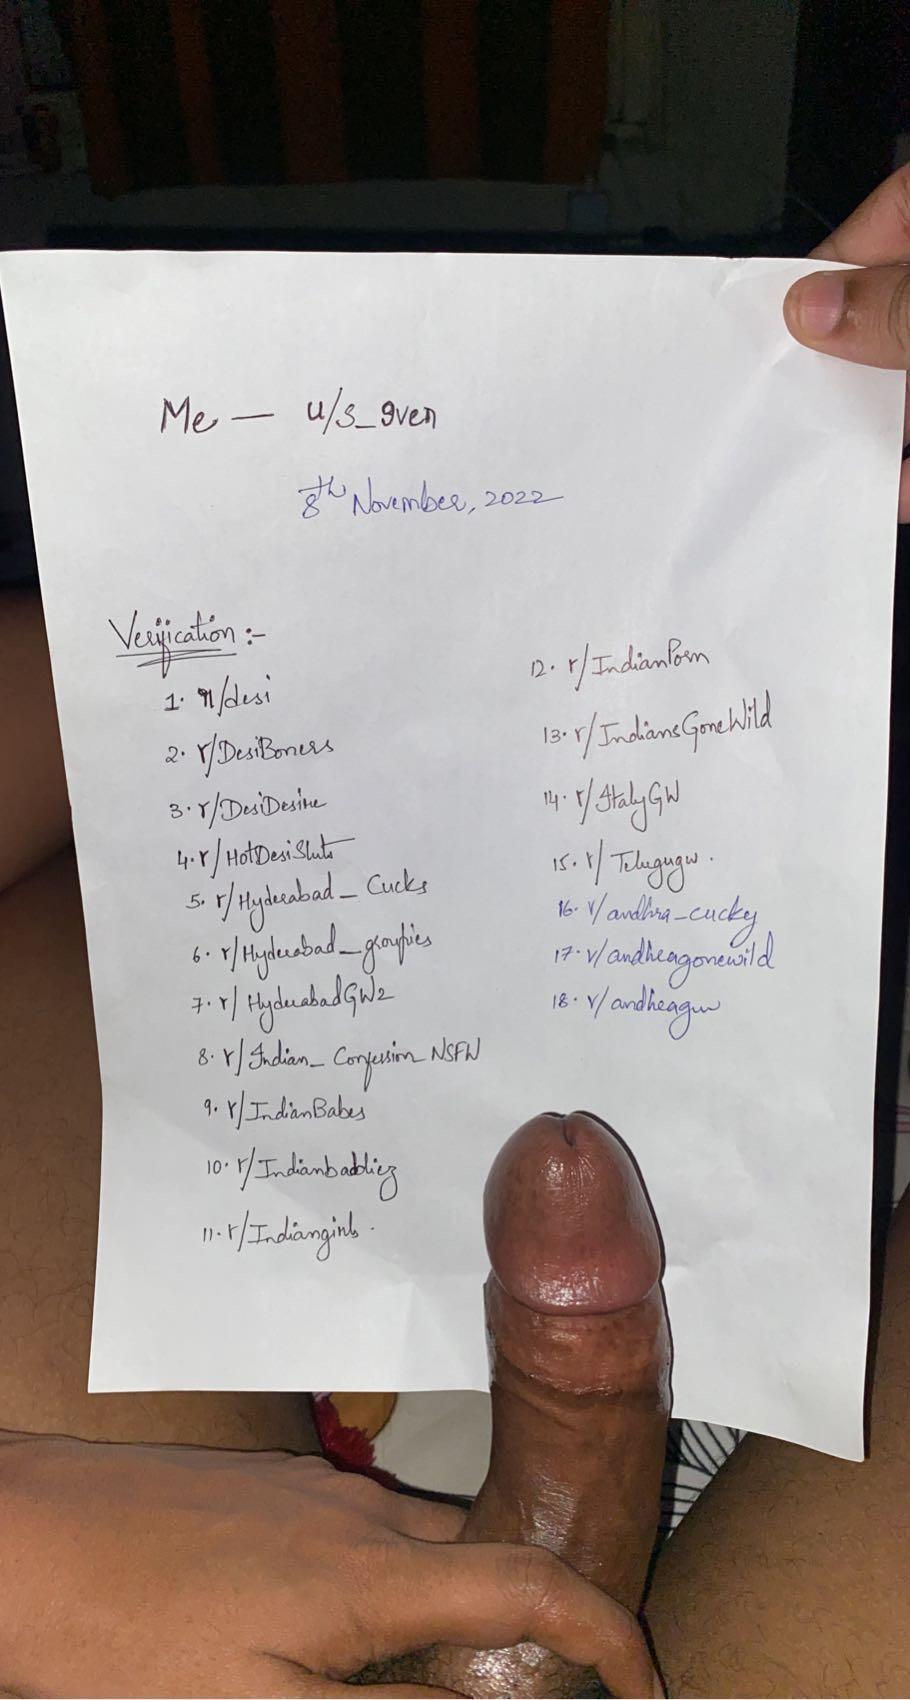 Me — u/s_9ven
8th November, 2022
Verification :-
1. r/desi
2. r/DesiBoners
3. r/DesiDesire
4. r/HotDesiSluts
5. r/Hyderabad_Cucks
6. r/Hyderabad_groupies
7. r/HyderabadGW2
8. r/Indian_Confession_NSFW
9. r/IndianBabes
10. r/Indianbaddiez
11. r/Indiangirls.
12. r/IndianPorn
13. r/IndiansGoneWild
14. r/ItalyGW
15. r/Telugugw.
16. r/andhra_cucky
17. r/andhragonewild
18. r/andhragw